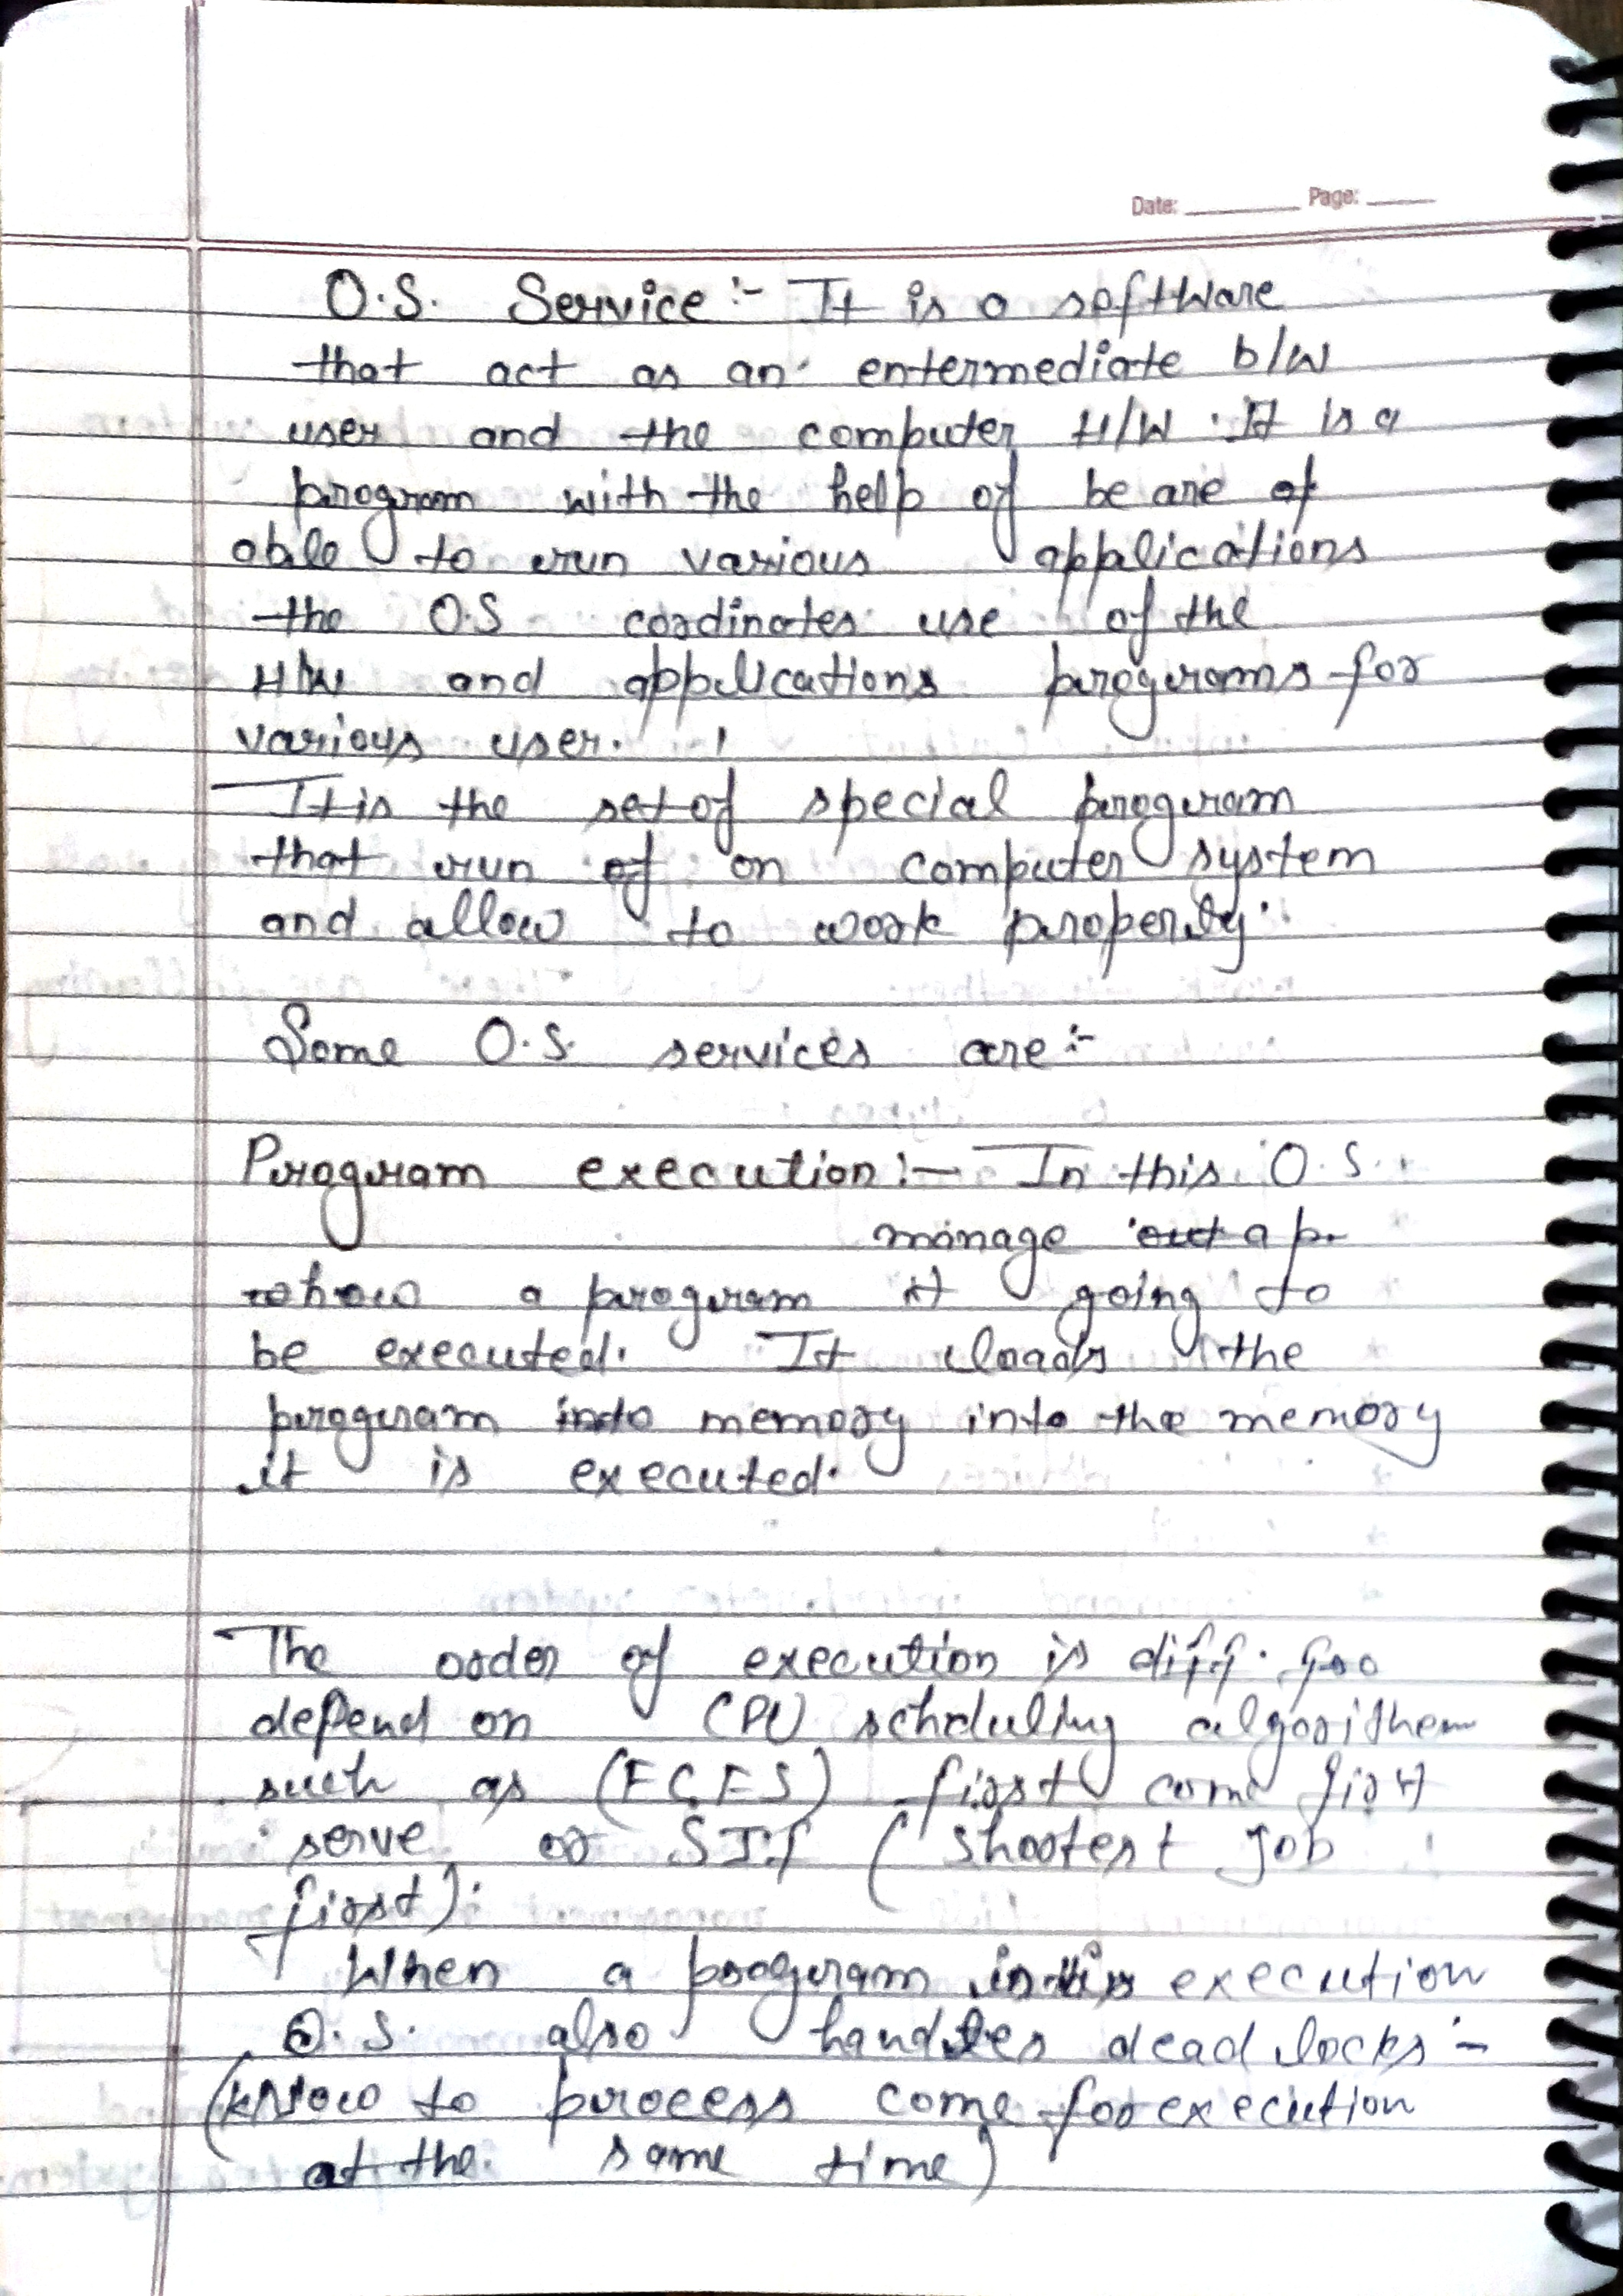 Date: Page:
O.S. Service :- It is a software
that act as an entermediate b/w
user and the computer H/W. It is a
program with the help of be are of
able to run various applications
the O.S coordinates use of the
H/W and applications programs for
various user.
It is the set of special program
that run of on computer system
and allow to work properly.
Some O.S. services are :-
Program execution :- In this O.S.
manage out a p.
how a program it going to
be executed. It loads the
program into memory into the memory
it is executed.
The order of execution is diff. for
depend on CPU scheduling algorithem
such as (FCFS) first come first
serve or SJF (Shortest job
first).
When a program is execution
O.S. also handles dead locks :-
(know to process come for execution
at the same time)